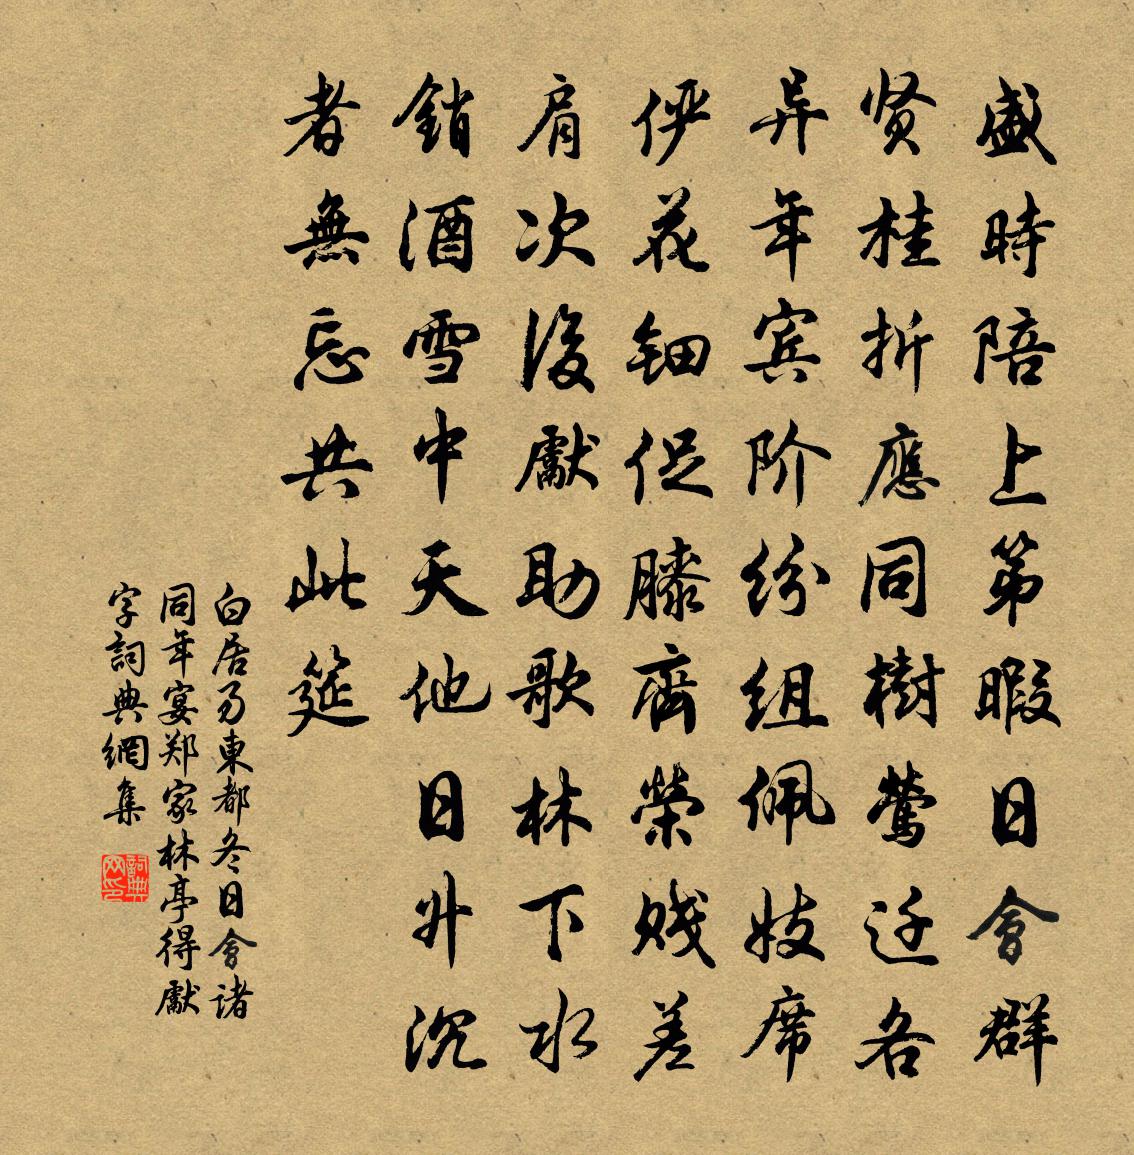 盛時陪上第暇日會群
贤桂折應同樹鶯迁各
异年宾阶纷组佩妓席
俨花钿促膝齊榮贱差
肩次後獻助歌林下水
銷酒雪中天他日升沉
者無忘共此筵
白居易東都冬日會諸
同年宴郑家林亭得獻
字詞典網集
詞典网印